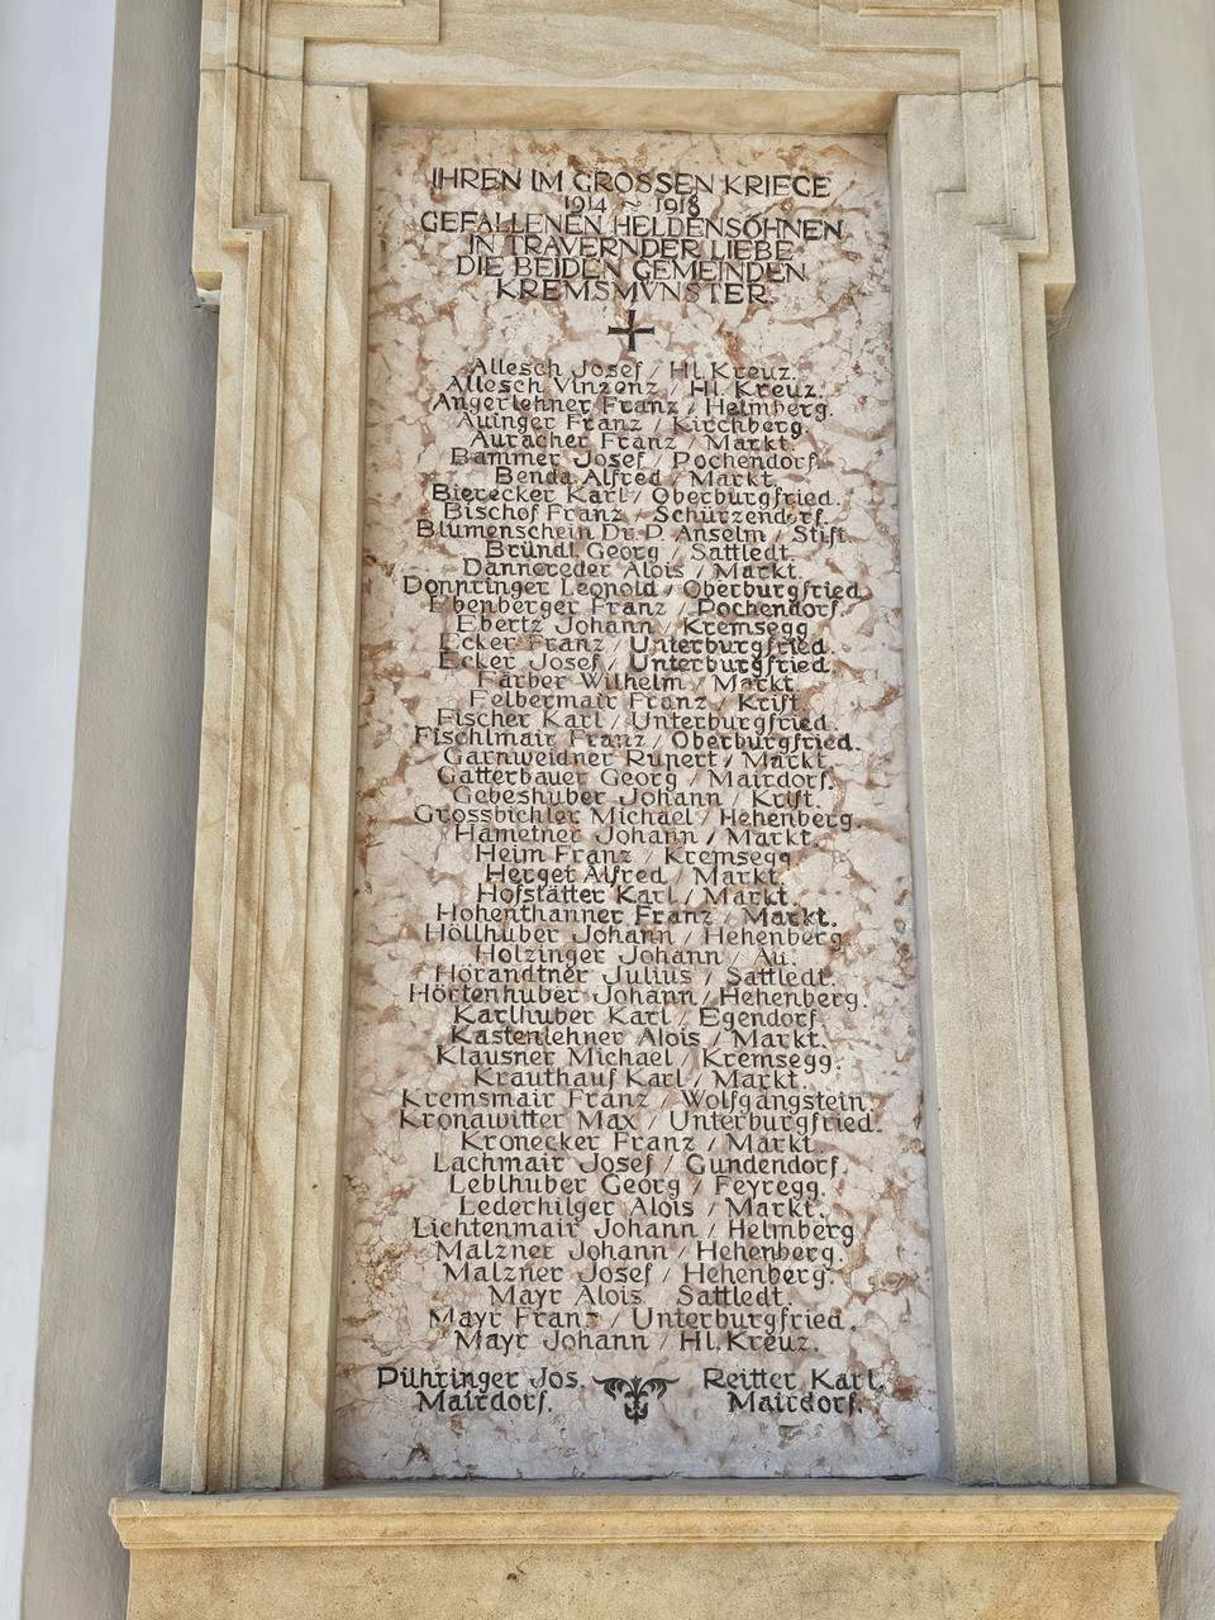 IHREN IM GROSSEN KRIEGE
1914 ~ 1918
GEFALLENEN HELDENSÖHNEN
IN TRAVERNDER LIEBE
DIE BEIDEN GEMEINDEN
KREMSMVNSTER.
Allesch Josef / Hl. Kreuz.
Allesch Vinzenz / Hl. Kreuz.
Angerlehner Franz / Helmberg.
Auinger Franz / Kirchberg.
Auracher Franz / Markt.
Bammer Josef / Pochendorf.
Benda Alfred / Markt.
Bierecker Karl / Oberburgfried.
Bischof Franz / Schürzendorf.
Blumenschein Dr. P. Anselm / Stift.
Bründl Georg / Sattledt.
Dannereder Alois / Markt.
Donnringer Leopold / Oberburgfried.
Ebenberger Franz / Pochendorf.
Ebertz Johann / Kremsegg
Ecker Franz / Unterburgfried.
Ecker Josef / Unterburgfried.
Färber Wilhelm / Markt.
Felbermair Franz / Krift.
Fischer Karl / Unterburgfried.
Fischlmair Franz / Oberburgfried.
Garnweidner Rupert / Markt.
Gatterbauer Georg / Mairdorf.
Gebeshuber Johann / Krift.
Grossbichler Michael / Hehenberg.
Hametner Johann / Markt.
Heim Franz / Kremsegg.
Herget Alfred / Markt.
Hofstätter Karl / Markt.
Hohenthanner Franz / Markt.
Höllhuber Johann / Hehenberg.
Holzinger Johann / Au.
Hörandtner Julius / Sattledt.
Hörtenhuber Johann / Hehenberg.
Karlhuber Karl / Egendorf.
Kastenlehner Alois / Markt.
Klausner Michael / Kremsegg.
Krauthauf Karl / Markt.
Kremsmair Franz / Wolfgangstein.
Kronawitter Max / Unterburgfried.
Kronecker Franz / Markt.
Lachmair Josef / Gundendorf.
Leblhuber Georg / Feyregg.
Lederhilger Alois / Markt.
Lichtenmair Johann / Helmberg
Malzner Johann / Hehenberg.
Malzner Josef / Hehenberg.
Mayr Alois Sattledt.
Mayr Franz / Unterburgfried.
Mayr Johann / Hl. Kreuz.
Pühringer Jos.
Mairdorf.
Reitter Karl.
Mairdorf.